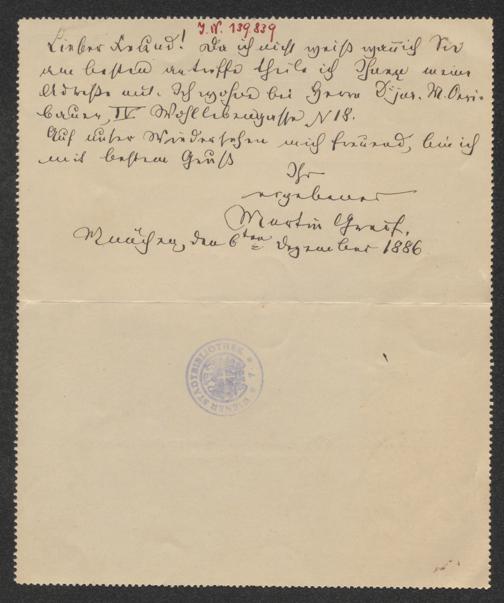 I.N. 139839
Lieber Freund! Da ich nicht weiß wann ich Sie
am besten antreffe theile ich Ihnen meine
Adresse mit. Ich wohne bei Herrn
bauer, IV Wohllebengasse N 18.
Auf unser Wiedersehen mich freuend, bin ich
mit bestem Gruß
Ihr
ergebener
Martin Greif.
München, den 6ten Dezember 1886
WIENER STADTBIBLIOTHEK